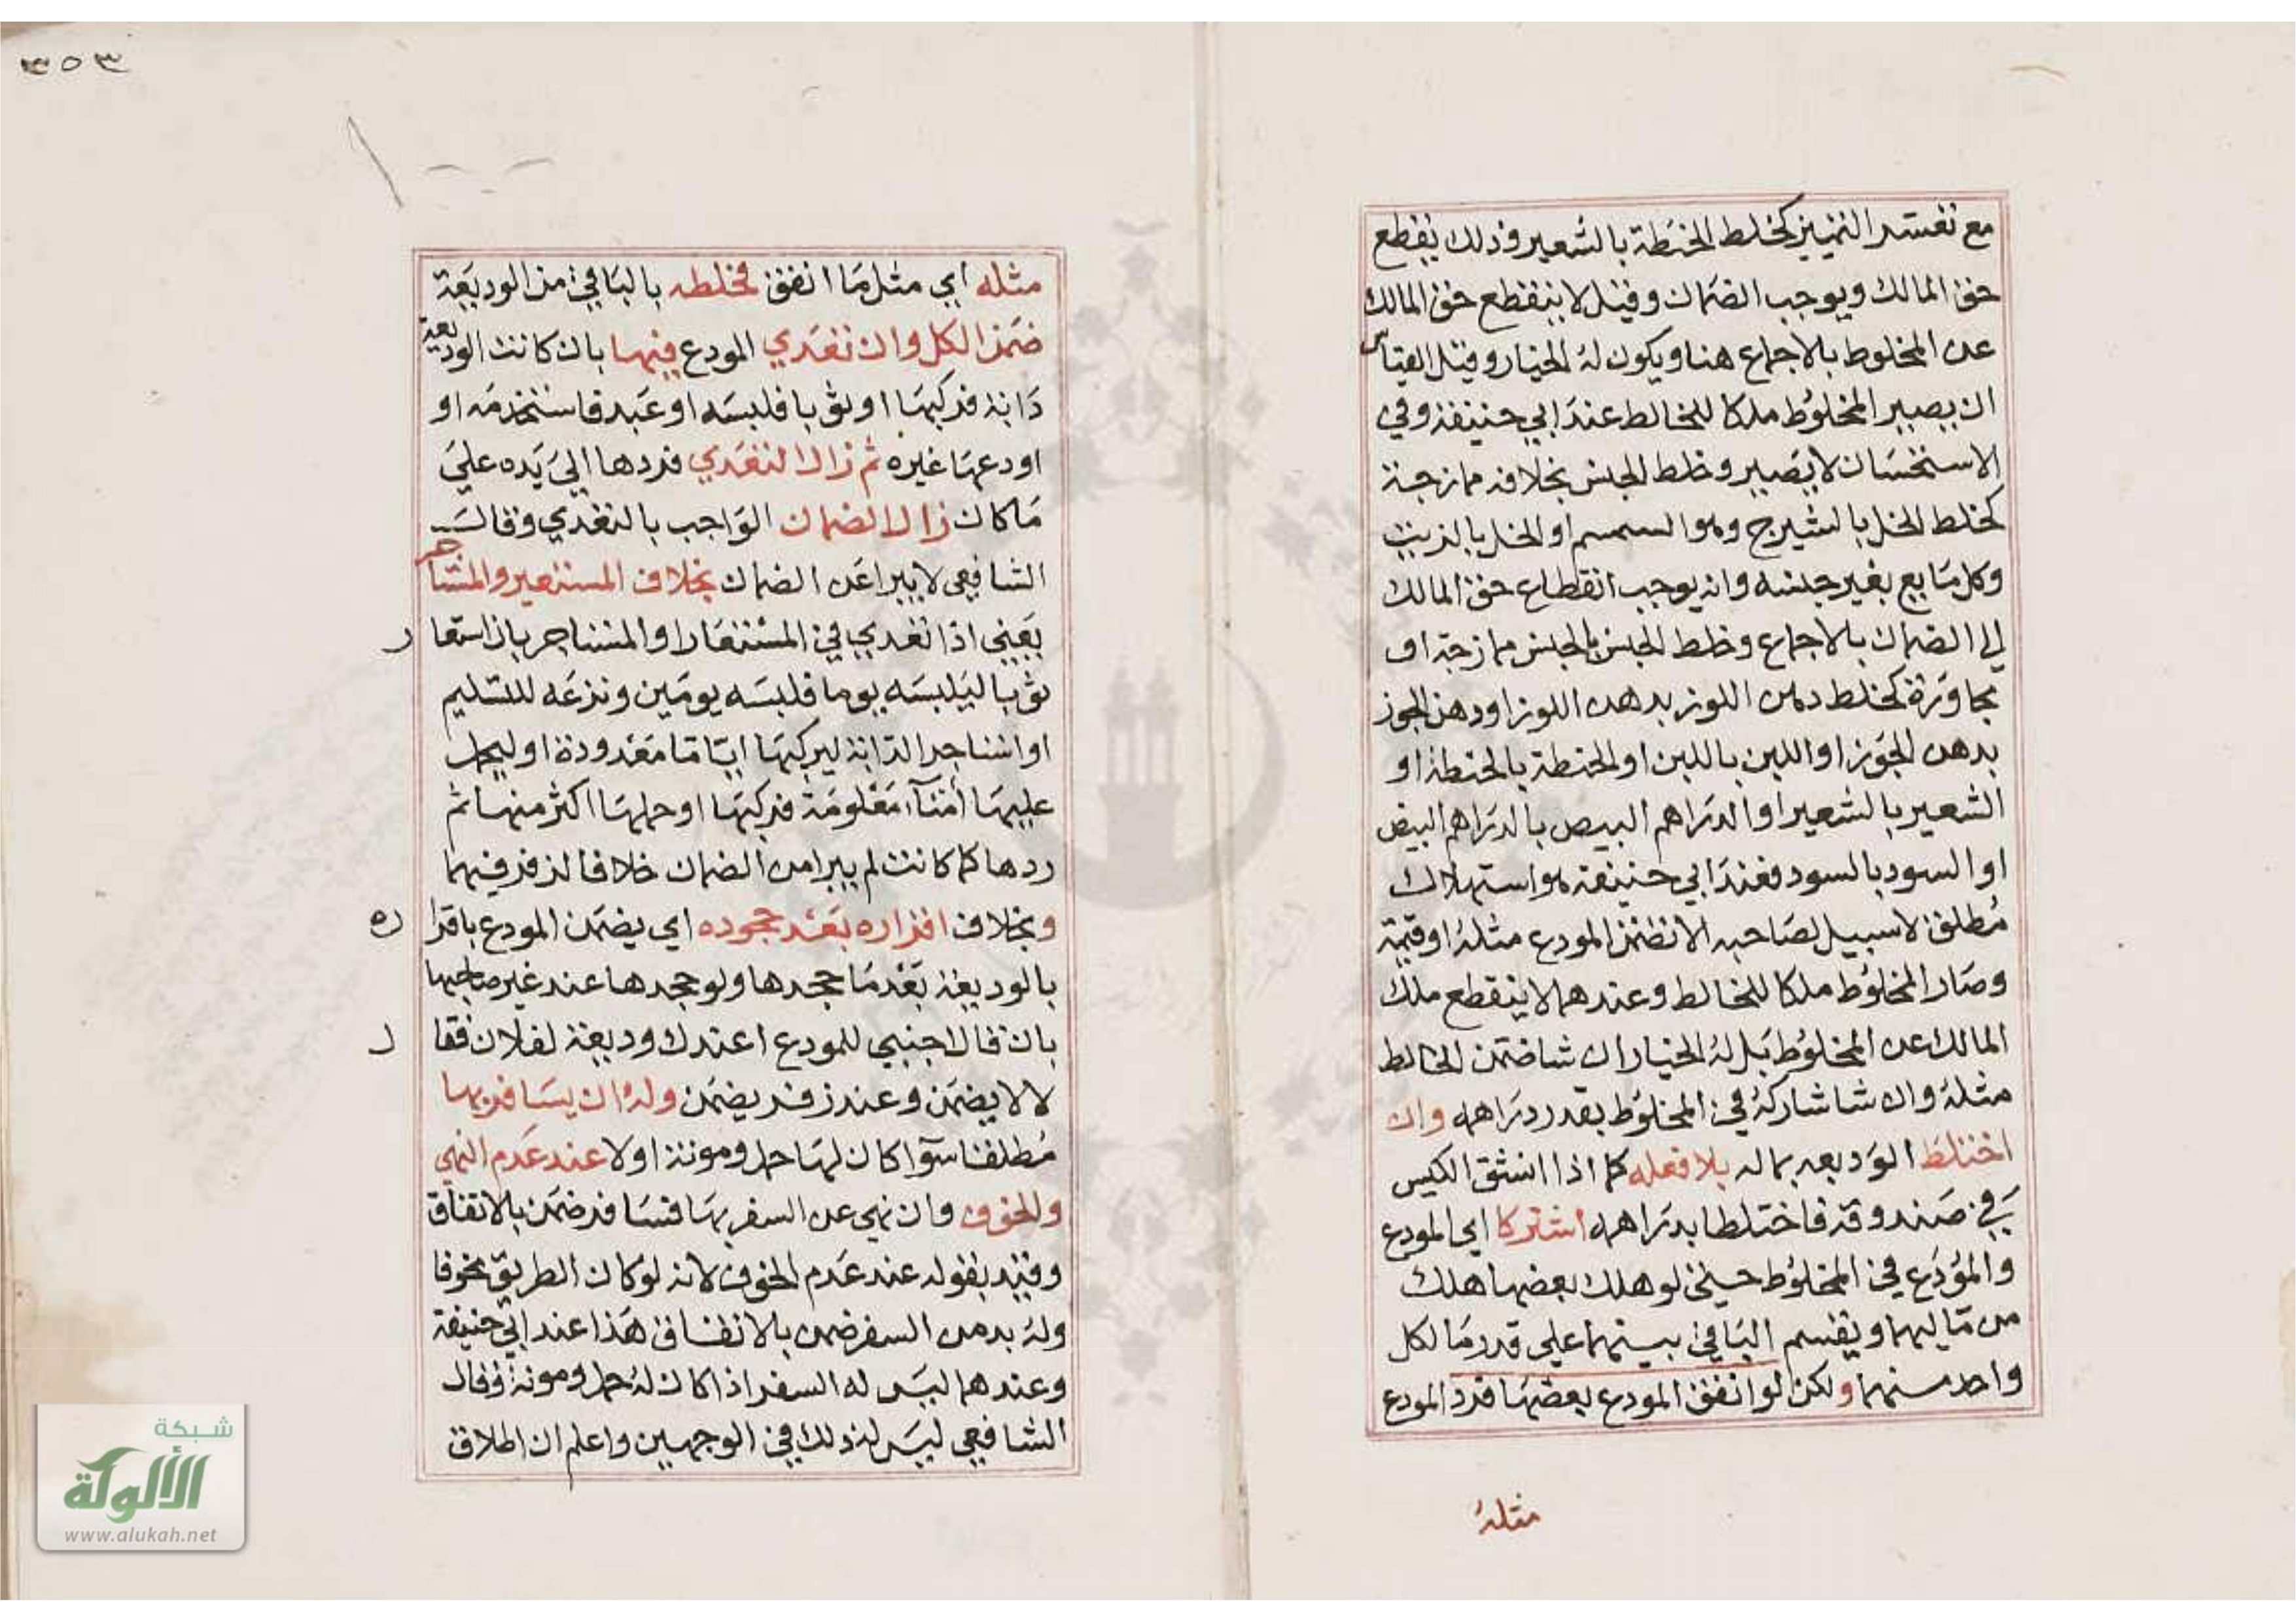 مع تعسر التمييز كخلط الحنطة بالشعير وذلك يقطع
حق المالك ويوجب الضمان وقيل لا ينقطع حق المالك
عن المخلوط بالاجماع هنا ويكون له الخيار وقيل القياس
ان يصير المخلوط ملكا للخالط عند ابي حنيفة وفي
الاستحسان لا يصير وخلط الجنس بخلافه ممازجة
كخلط الخل بالشيرج وهو السمسم او الخل بالزيت
وكل مايع بغير جنسه وانه يوجب انقطاع حق المالك
الى الضمان بالاجماع وخلط الجنس بالجنس ممازجة او
مجاورة كخلط دهن اللوز بدهن اللوز او دهن الجوز
بدهن الجوز او اللبن باللبن او الحنطة بالحنطة او
الشعير بالشعير او الدراهم البيض بالدراهم البيض
او السود بالسود فعند ابي حنيفة هو استهلاك
مطلق لا سبيل لصاحبه الا تضمن المودع مثله او قيمة
وصار المخلوط ملكا للخالط وعندهما لا ينقطع ملك
المالك عن المخلوط بل له الخيار ان شا ضمن الخالط
مثله وان شا شاركه في المخلوط بقدر دراهمه وان
اختلط الوديعه بماله بلا فعله كما اذا انشق الكيس
في صندوقه فاختلطا بدراهمه اشتركا اي المودع
والمودع في المخلوط حيني لو هلك بعضها هلك
من ماليهما ويقسم الباقي بينهما علي قدر ما لكل
واحد منهما ولكن لو انفق المودع بعضها فرد المودع
مثله
٣٥٣
مثله اي مثل ما انفق فخلطه بالباقي من الوديعة
ضمن الكل وان تعدي المودع فيها بان كانت الوديعة
دابة فركبها او ثوبا فلبسه او عبد فاستخدمه او
اودعها غيره ثم زال التعدي فردها الي يده علي
ما كان زال الضمان الواجب بالتعدي وقال
الشافعي لا يبرا عن الضمان بخلاف المستعير والمستاجر
يعني اذا تعدي في المستعار او المستاجر بان استعار
ثوبا ليلبسه يوما فلبسه يومين ونزعه للتسليم
او استاجر الدابة ليركبها اياما معدودة او ليحمل
عليها أمنآء معلومة فركبها او حملها اكثر منها ثم
ردها كما كانت لم يبرا من الضمان خلافا لزفر فيهما
وبخلاف اقراره بعد جحوده اي يضمن المودع باقراره
بالوديعة بعد ما جحدها ولو جحدها عند غير صاحبها
بان قال اجنبي للمودع اعندك وديعة لفلان فقال
لا لا يضمن وعند زفر يضمن وله ان يسافر بها
مطلقا سوآ كان لها حمل ومونة او لا عند عدم النهي
والخوف وان نهي عن السفر بها فسافر ضمن بالاتفاق
وقيد بقوله عند عدم الخوف لانه لو كان الطريق مخوفا
وله بد من السفر ضمن بالاتفاق هذا عند ابي حنيفة
وعندهما ليس له السفر اذا كان له حمل ومونة وقال
الشافعي ليس له ذلك في الوجهين واعلم ان اطلاق
شبكة
الألوكة
www.alukah.net